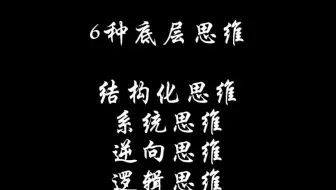 6种底层思维
结构化思维
系统思维
逆向思维
逻辑思维